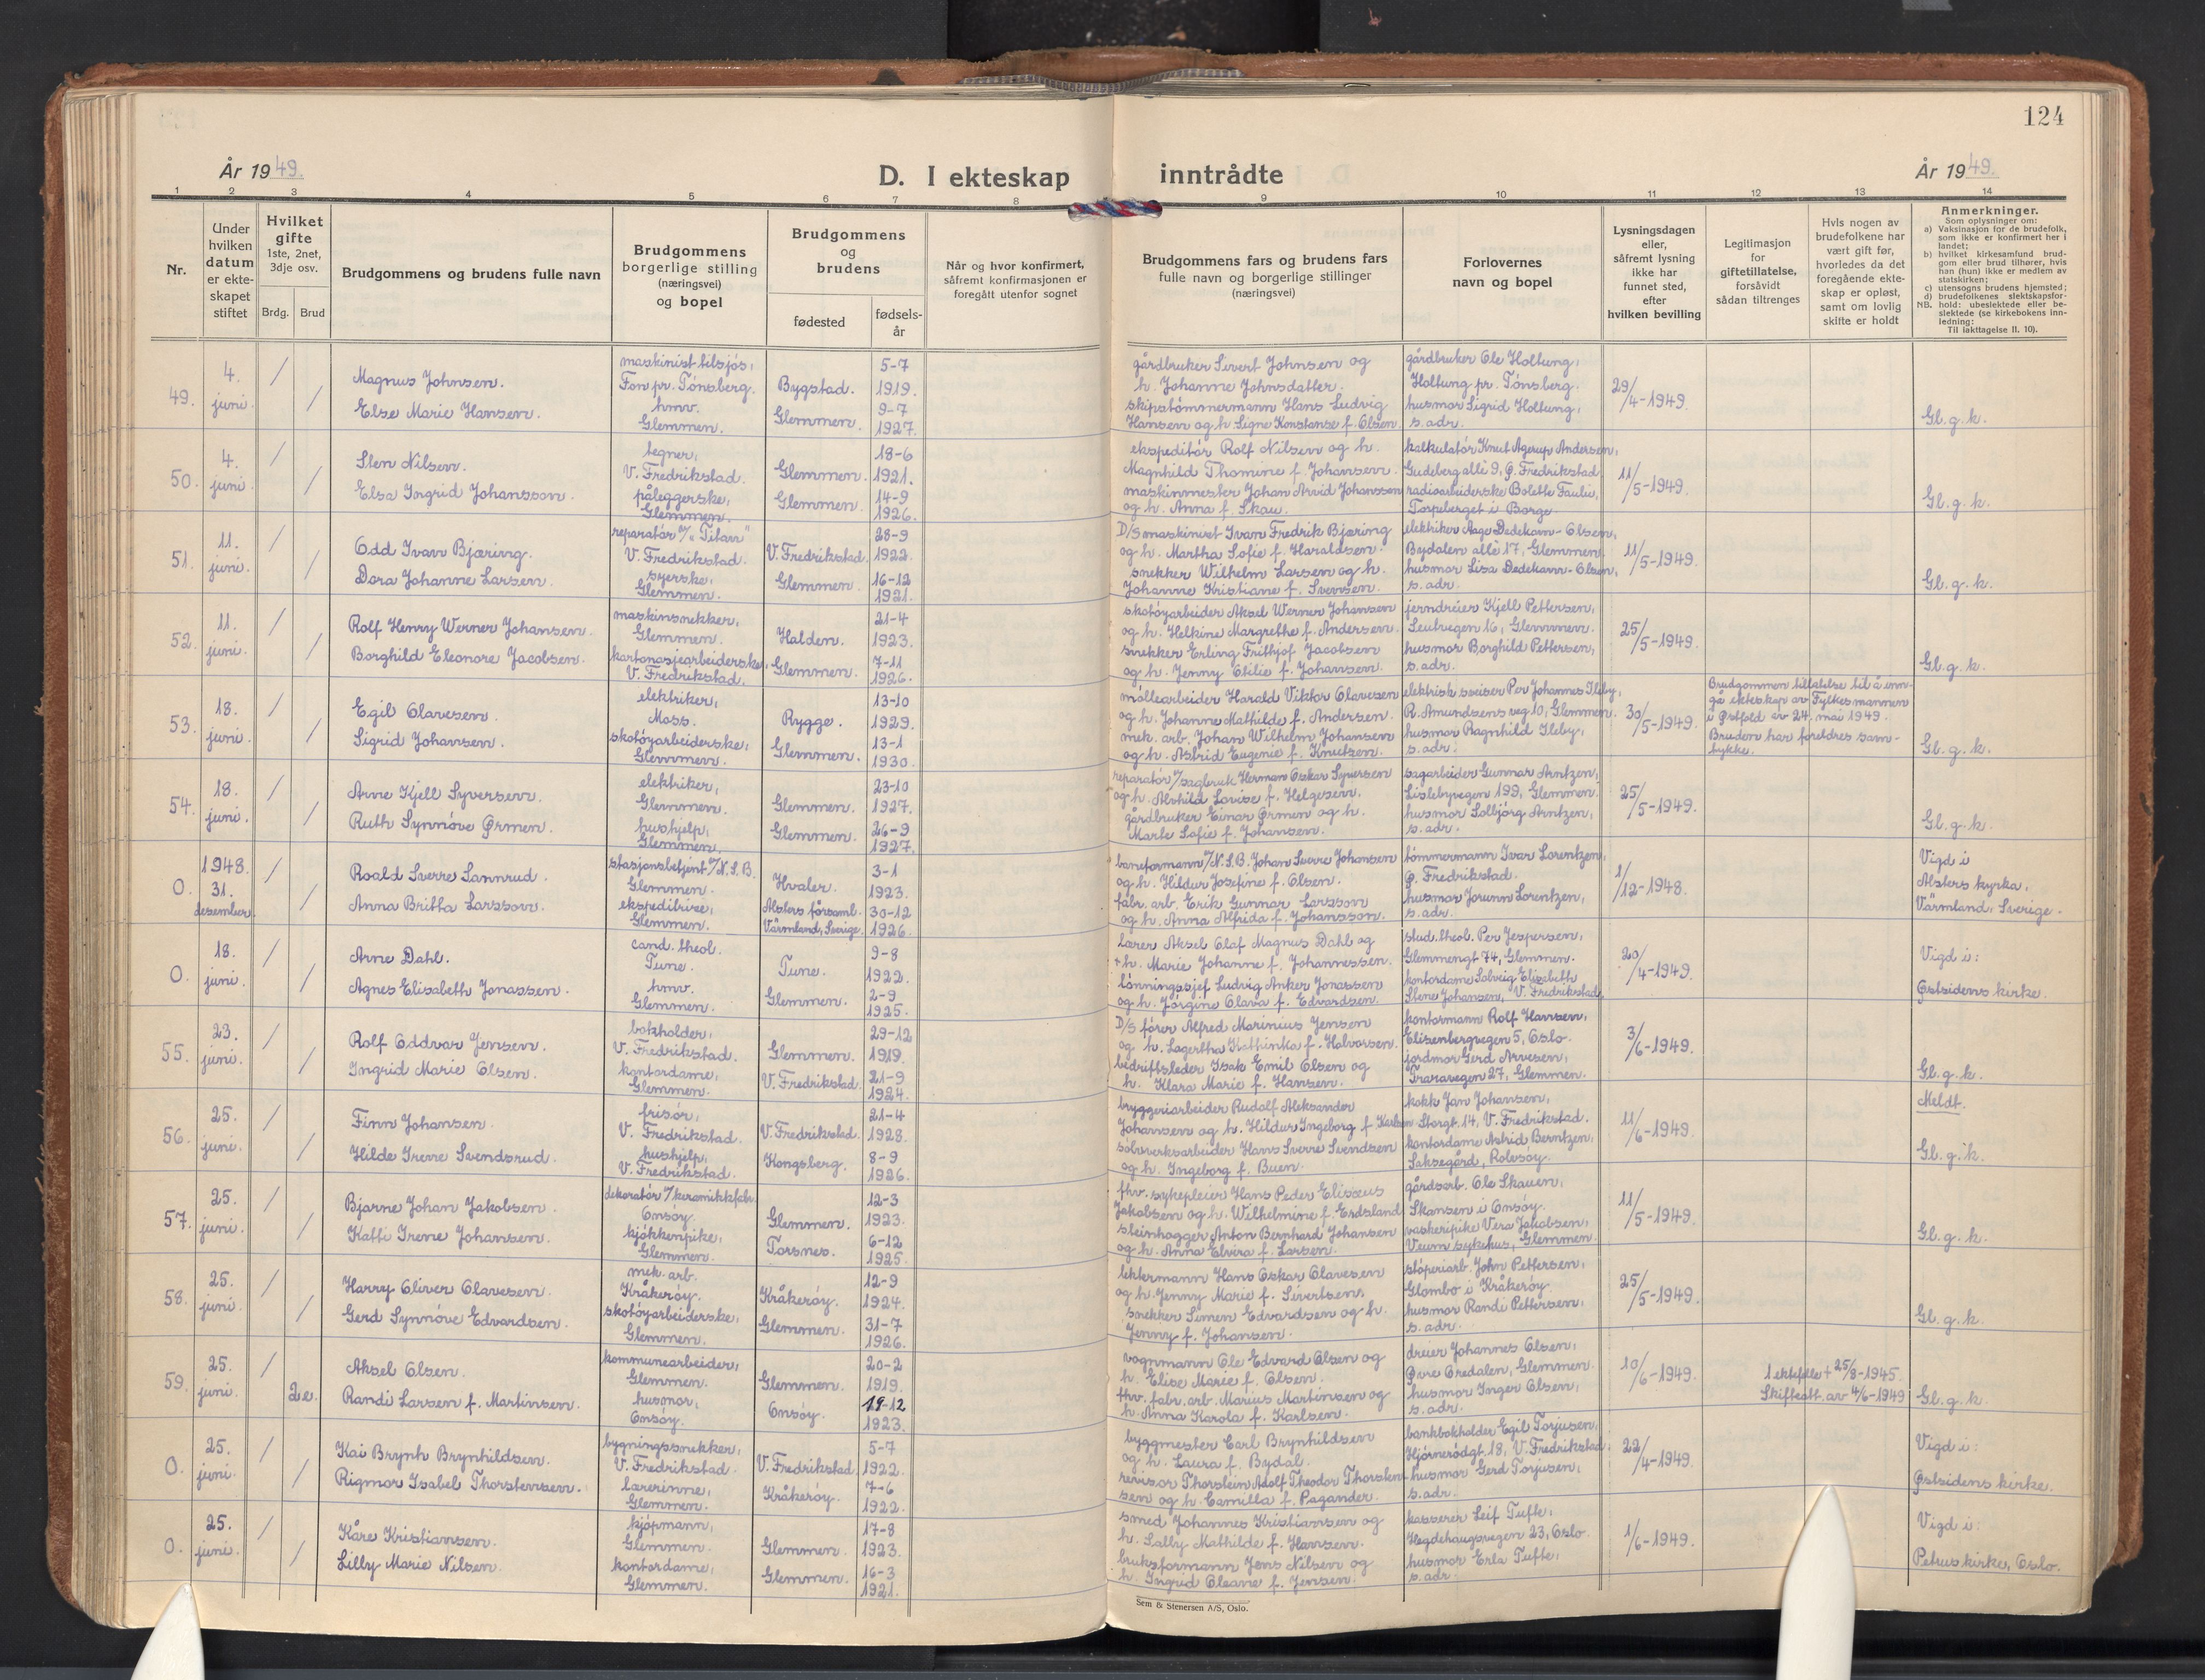 124
År 1949.
D. I ekteskap inntrådte
År 1949.
1 2 3 4 5 6 7 8 9 10 11 12 13 14
Nr.
Under hvilken datum er ekte-skapet stiftet
Hvilket gifte 1ste, 2net, 3dje osv.
Brdg. Brud
Brudgommens og brudens fulle navn
Brudgommens borgerlige stilling (næringsvei) og bopel
Brudgommens og brudens
fødested
fødsels-år
Når og hvor konfirmert, såfremt konfirmasjonen er foregått utenfor sognet
Brudgommens fars og brudens fars fulle navn og borgerlige stillinger (næringsvei)
Forlovernes navn og bopel
Lysningsdagen eller, såfremt lysning ikke har funnet sted, efter hvilken bevilling
Legitimasjon for giftetillatelse, forsåvidt sådan tiltrenges
Hvis nogen av brudefolkene har vært gift før, hvorledes da det foregående ekte-skap er opløst, samt om lovlig skifte er holdt
Anmerkninger.
Som oplysninger om:
a) Vaksinasjon for de brudefolk, som ikke er konfirmert her i landet;
b) hvilket kirkesamfund brud-gom eller brud tilhører, hvis han (hun) ikke er medlem av statskirken;
c) utensogns brudens hjemsted;
d) brudefolkenes slektskapsfor-hold: ubeslektede eller be-slektede (se kirkebokens inn-ledning:
NB. Til iakttagelse ll. 10).
49. 4. juni. / /
Magnus Johnsen.
Else Marie Hansen.
maskinist tilsjøs,
Fon pr. Tønsberg.
hmv.
Glemmen.
Bygstad. 5-7 1919.
Glemmen. 9-7 1927.
gårdbruker Sivert Johnsen og
h. Johanne Johnsdatter.
skipstømmermann Hans Ludvig
Hansen og h. Signe Konstanse f. Olsen.
gårdbruker Ole Holtung,
Holtung pr. Tønsberg.
husmor Sigrid Holtung,
s. adr.
29/4-1949.
Gl. g. k.
50. 4. juni. / /
Sten Nilsen.
Elsa Ingrid Johansson.
tegner,
V. Fredrikstad.
påleggerske,
Glemmen.
Glemmen. 18-6 1921.
Glemmen. 14-9 1926.
ekspeditør Rolf Nilsen og h.
Magnhild Thomine f. Johansen.
maskinmester Johan Arvid Johanssen
og h. Anna f. Skau.
kalkulatør Knut Agerup Andersen,
Gudeberg allé 9, Ø. Fredrikstad.
radioarbeiderske Bolette Faulie,
Torpeberget i Borge
11/5-1949.
Gl. g. k.
51. 11. juni. / /
Odd Ivan Bjæring.
Dora Johanne Larsen.
reparatør v/ "Titan"
V. Fredrikstad.
syerske,
Glemmen.
V. Fredrikstad. 28-9 1922.
Glemmen. 16-12 1921.
D/S maskinist Ivan Fredrik Bjæring
og h. Martha Sofie f. Haraldsen.
snekker Wilhelm Larsen og h.
Johanne Kristiane f. Svensen.
elektriker Aage Dedekam-Olsen,
Bydalen allé 17, Glemmen.
husmor Lisa Dedekam-Olsen,
s. adr.
11/5-1949.
Gl. g. k.
52. 11. juni. / /
Rolf Henry Werner Johansen.
Borghild Eleonore Jacobsen.
maskinsnekker,
Glemmen.
kartonasjearbeiderske,
V. Fredrikstad.
Halden. 21-4 1923.
Glemmen. 7-11 1926.
skotøyarbeider Aksel Werner Johansen
og h. Helkine Margrethe f. Andersen.
snekker Erling Frithjof Jacobsen
og h. Jenny Otilie f. Johansen.
jerndreier Kjell Pettersen,
Leutvegen 16, Glemmen.
husmor Borghild Pettersen,
s. adr.
25/5-1949.
Gl. g. k.
53. 18. juni. / /
Egil Olavesen.
Sigrid Johansen.
elektriker,
Moss.
skotøyarbeiderske,
Glemmen.
Rygge. 13-10 1929.
Glemmen. 13-1 1930.
møllearbeider Harald Viktor Olavesen
og h. Johanne Mathilde f. Andersen.
mek. arb. Johan Wilhelm Johansen
og h. Astrid Eugenie f. Knutsen.
elektrisk sveiser Per Johannes Ileby,
R. Amundsens veg 10, Glemmen.
husmor Ragnhild Ileby,
s. adr.
30/5-1949.
Brudgommen tillatelse til å inn-
gå ekteskap av Fylkesmannen
i Østfold av 24. mai 1949.
Bruden har foreldres sam-
tykke.
Gl. g. k.
54. 18. juni. / /
Arne Kjell Syversen.
Ruth Synnöve Ørmen.
elektriker,
Glemmen.
hushjelp,
Glemmen.
Glemmen. 23-10 1927.
Glemmen. 26-9 1927.
reparatør v/sagbruk Herman Oskar Syversen
og h. Alvhild Lovise f. Helgesen.
gårdbruker Einar Ørmen og h.
Marte Sofie f. Johansen.
sagarbeider Gunnar Arntzen,
Lislebyvegen 199, Glemmen.
husmor Solbjörg Arntzen,
s. adr.
25/5-1949.
Gl. g. k.
0. 1948. 31. desember. / /
Roald Sverre Sannrud.
Anna Britta Larsson.
stasjonsbetjent v/N.S.B.
Glemmen.
ekspeditrise,
Glemmen.
Hvaler. 3-1 1923.
Alsters församl. Värmland, Sverige. 30-12 1926.
baneformann v/N.S.B. Johan Sverre Johansen
og h. Hildur Josefine f. Olsen.
fabr. arb. Erik Gunnar Larsson
og h. Anna Alfrida f. Johansson.
tømmermann Ivar Lorentzen,
Ø. Fredrikstad.
husmor Jorunn Lorentzen,
s. adr.
1/12-1948.
Vigd i
Alsters kyrka,
Värmland, Sverige.
0. 18. juni. / /
Arne Dahl.
Agnes Elisabeth Jonassen.
cand. theol.
Tune.
hmv.
Glemmen.
Tune. 9-8 1922.
Glemmen. 2-9 1925.
lærer Aksel Olaf Magnus Dahl og
+ h. Marie Johanne f. Johannessen.
lønningssjef Ludvig Anker Jonassen
og h. Jørgine Olava f. Edvardsen.
stud. theol. Per Jespersen,
Glemmengt 74, Glemmen.
kontordame Solveig Elisabeth
Stene Johansen, V. Fredrikstad.
20/4-1949.
Vigd i:
Østsidens kirke.
55. 23. juni. / /
Rolf Oddvar Jensen.
Ingrid Marie Olsen.
bokholder,
V. Fredrikstad.
kontordame,
Glemmen.
Glemmen. 29-12 1919.
V. Fredrikstad. 21-9 1924.
D/S fører Alfred Marinius Jensen
og h. Lagertha Kathinka f. Halvorsen.
bedriftsleder Isak Emil Olsen og
h. Klara Marie f. Hansen.
kontormann Rolf Hansen,
Elisenbergvegen 5, Oslo.
jordmor Gerd Arvesen,
Traravegen 27, Glemmen.
3/6-1949.
Gl. g. k.
56. 25. juni. / /
Finn Johansen.
Hilde Irene Svendsrud.
frisør,
V. Fredrikstad.
hushjelp,
V. Fredrikstad.
V. Fredrikstad. 21-4 1928.
Kongsberg. 8-9 1926.
bryggeriarbeider Rudolf Aleksander
Johansen og h. Hildur Ingeborg f. Karlsen.
sølvverksarbeider Hans Sverre Svendsen
og h. Ingeborg f. Buen.
kokk Jan Johansen,
Storgt. 14, V. Fredrikstad.
kontordame Astrid Berntzen,
Saksegård, Rolvsøy.
11/6-1949.
Meldt.
Gl. g. k.
57. 25. juni. / /
Bjarne Johan Jakobsen.
Katti Irene Johansen.
dekoratør v/keramikkfabr.
Onsøy.
kjøkkenpike,
Glemmen.
Glemmen. 12-3 1923.
Torsnes. 6-12 1925.
fhv. sykepleier Hans Peder Elisæus
Jakobsen og h. Wilhelmine f. Erdsland
steinhogger Anton Bernhard Johansen
og h. Anna Elvera f. Larsen.
gårdsarb. Ole Skauen,
Skansen i Onsøy.
vaskeripike Vera Jakobsen,
Veum sykehus, Glemmen.
11/5-1949.
Gl. g. k.
58. 25. juni. / /
Harry Oliver Olavesen.
Gerd Synnöve Edvardsen.
mek. arb.
Kråkerøy.
skotøyarbeiderske,
Glemmen.
Kråkerøy. 12-9 1924.
Glemmen. 31-7 1926.
lektermann Hans Oskar Olavesen
og h. Jenny Marie f. Sivertsen.
snekker Simen Edvardsen og h.
Jenny f. Johansen.
støperiarb. John Pettersen,
Glombo i Kråkerøy.
husmor Randi Pettersen,
s. adr.
25/5-1949.
Gl. g. k.
59. 25. juni. / 2e.
Aksel Olsen.
Randi Larsen f. Martinsen.
kommunearbeider,
Glemmen.
husmor,
Onsøy.
Glemmen. 20-2 1919.
Onsøy. 19-12 1923.
vognmann Ole Edvard Olsen og
h. Elise Marie f. Olsen.
fhv. fabr. arb. Marius Martinsen og
h. Anna Karola f. Karlsen.
dreier Johannes Olsen,
Øvre Oredalen, Glemmen.
husmor Inger Olsen,
s. adr.
10/6-1949.
1 ektefelle + 25/8-1945.
Skifteatt. av 4/6-1949
Gl. g. k.
0. 25. juni. / /
Kai Brynh Brynhildsen.
Rigmor Isabel Thorstensen.
bygningssnekker,
V. Fredrikstad.
lærerinne,
Glemmen.
V. Fredrikstad. 5-7 1922.
Kråkerøy. 7-6 1922.
byggmester Carl Brynhildsen
og h. Laura f. Bydal.
revisor Thorstein Adolf Theodor Thorsten-
sen og h. Camilla f. Pagander.
bankbokholder Egil Torjusen,
Hjørnerødgt. 18, V. Fredrikstad.
husmor Gerd Torjusen,
s. adr.
22/4-1949.
Vigd i:
Østsidens kirke.
0. 25. juni. / /
Kåre Kristiansen.
Lilly Marie Nilsen.
kjøpmann,
Glemmen.
kontordame,
Glemmen.
Glemmen. 17-8 1923.
Glemmen. 16-3 1921.
smed Johannes Kristiansen og
h. Sally Mathilde f. Hansen.
bruksformann Jens Nilsen og
h. Ingrid Oleane f. Jensen.
kasserer Leif Tufte,
Hegdehaugsvegen 23, Oslo.
husmor Erla Tufte,
s. adr.
1/6-1949.
Vigd i:
Petruskirke, Oslo.
Sem & Stenersen A/S, Oslo.